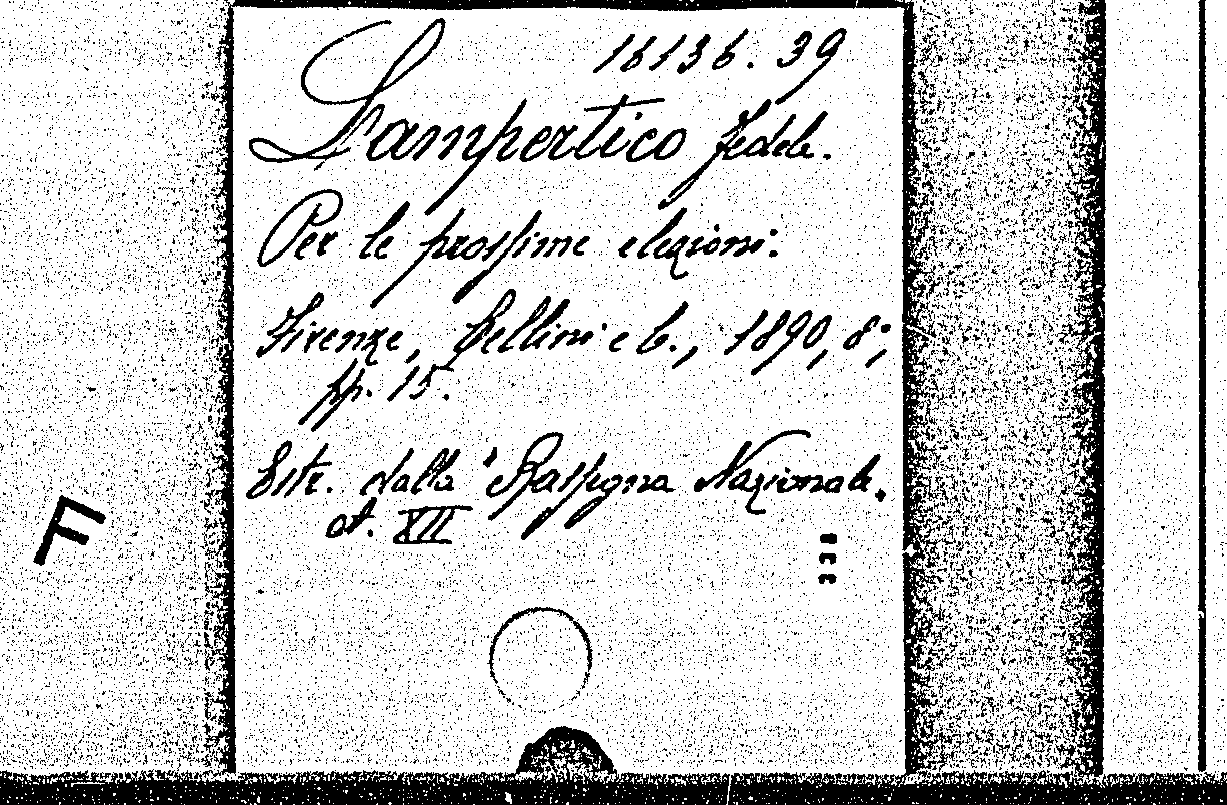 16136.39
Lampertico Fedele.
Per le prossime elezioni.
Firenze, Cellini e C., 1890, 8°,
pp. 15.
Estr. dalla "Rassegna Nazionale.
A. XII
F